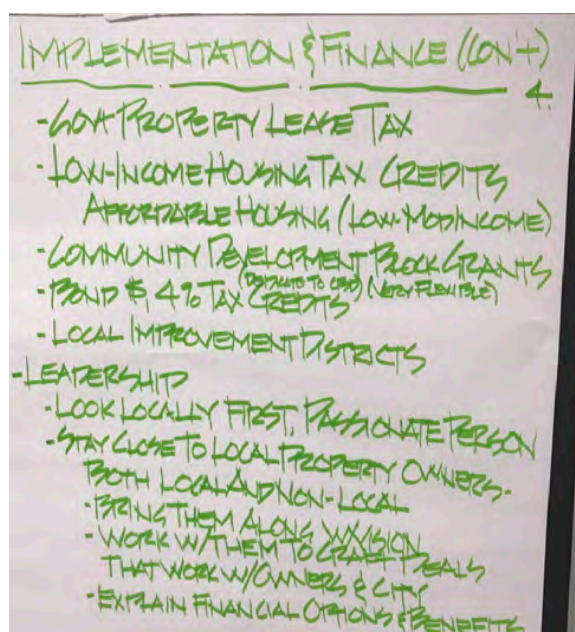 IMPLEMENTATION & FINANCE (CON'T)
4.
- GOV'T PROPERTY LEASE TAX
- LOW-INCOME HOUSING TAX CREDITS
AFFORDABLE HOUSING (LOW-MOD INCOME)
- COMMUNITY DEVELOPMENT BLOCK GRANTS
(DEDICATE TO CBD) (VERY FLEXIBLE)
- BOND $, 4% TAX CREDITS
- LOCAL IMPROVEMENT DISTRICTS
- LEADERSHIP
- LOOK LOCALLY FIRST, PASSIONATE PERSON
- STAY CLOSE TO LOCAL PROPERTY OWNERS -
BOTH LOCAL AND NON-LOCAL
- BRING THEM ALONG W/VISION
- WORK W/THEM TO CRAFT DEALS
THAT WORK W/OWNERS & CITY
- EXPLAIN FINANCIAL OPTIONS & BENEFITS